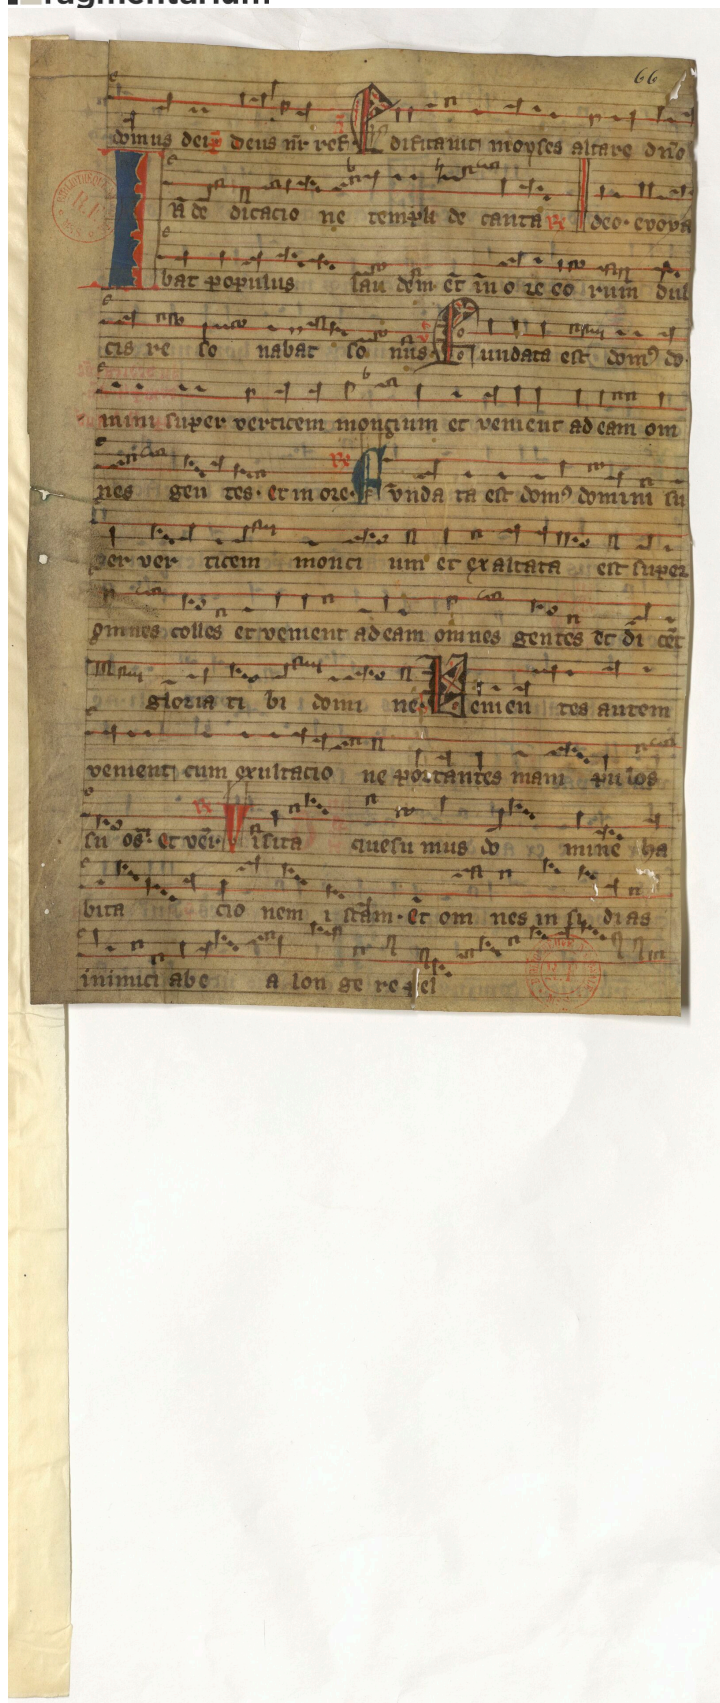 ragmentarium
66
domus dei ℟ deus nr̄ ref. E dificauit moyses altare dn̄o
I n̄ de dicacio ne templi de canta ℟ deo. evova
bat populus lau dem. et̄ in̄ o re eo rum dul
cis re so nabat so nus ℣ F undata est dom⁹ do
mini super verticem moncium et venient ad eam om
nes gen tes. et in ore. ℟ F vnda ta est dom⁹ domini su
per ver ticem monci um et exaltata est super
omnes colles et venient ad eam om nes gentes et di cēt
gloria ti bi domi ne V enien tes autem
venient cum exultacio ne portantes mani pulos
su os. et veī. ℟ V isita quesu mus do mine ha
bita cio nem i stam. et om nes in sy dias
inimici ab e a lon ge re pel